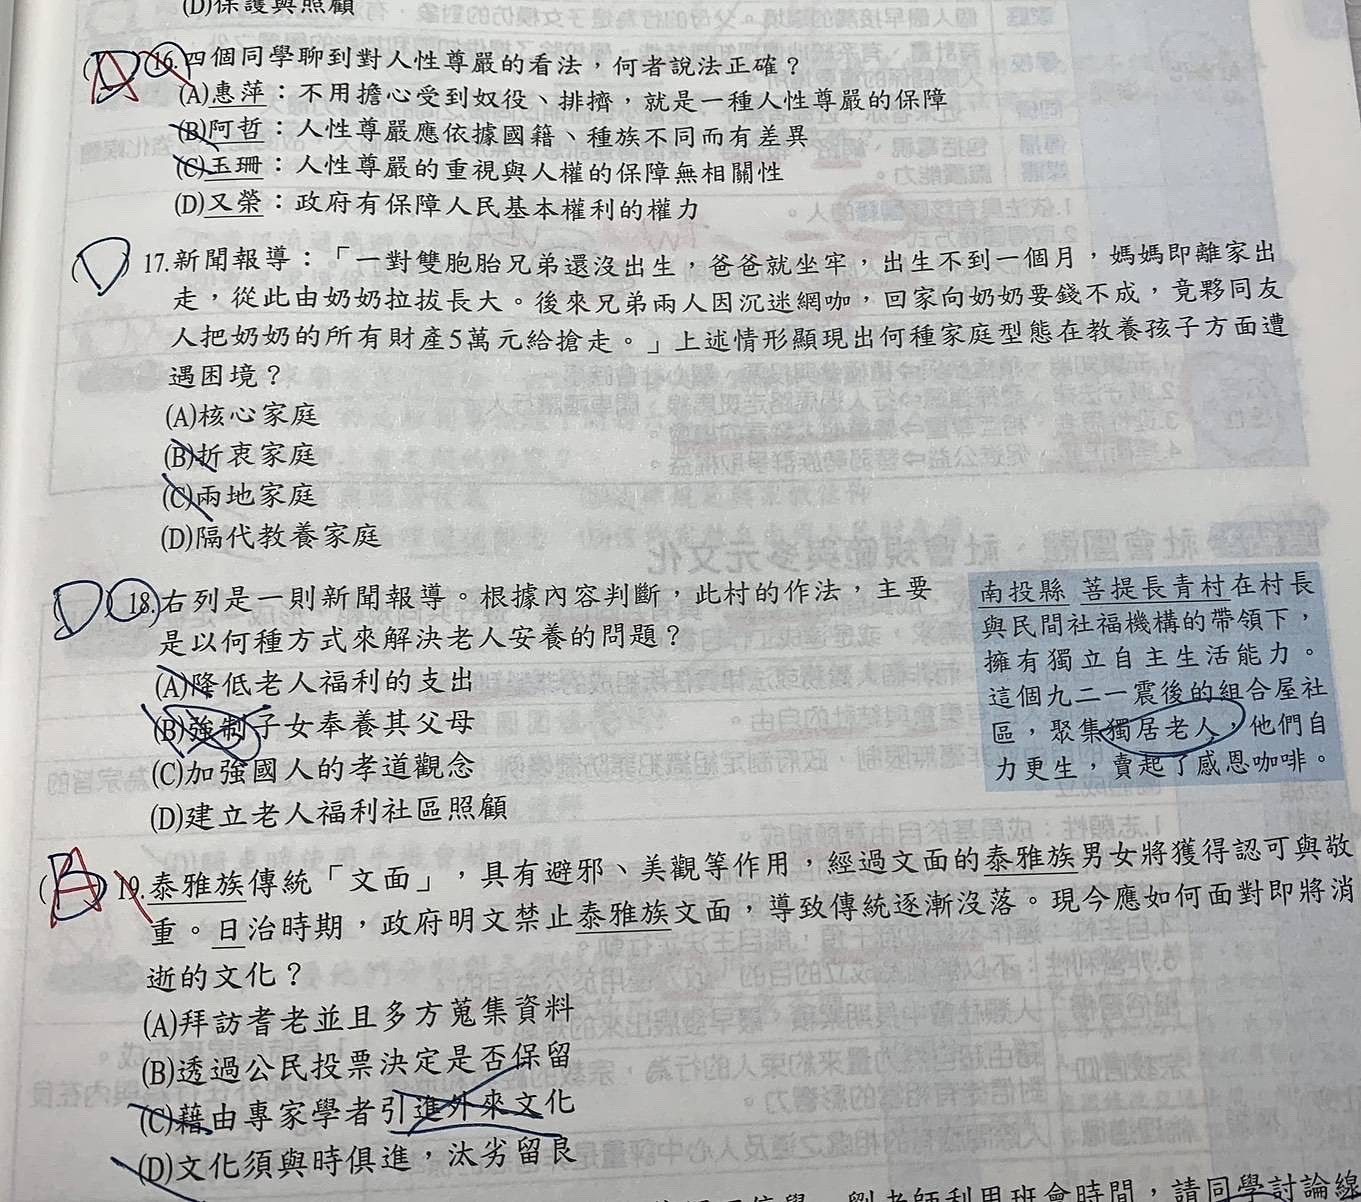 (D)保護與照顧
(A)16.四個同學聊到對人性尊嚴的看法，何者說法正確？
(A)惠萍：不用擔心受到奴役、排擠，就是一種人性尊嚴的保障
(B)阿哲：人性尊嚴應依據國籍、種族不同而有差異
(C)玉珊：人性尊嚴的重視與人權的保障無相關性
(D)又榮：政府有保障人民基本權利的權力
(D)17.新聞報導：「一對雙胞胎兄弟還沒出生，爸爸就坐牢，出生不到一個月，媽媽即離家出
走，從此由奶奶拉拔長大。後來兄弟兩人因沉迷網咖，回家向奶奶要錢不成，竟夥同友
人把奶奶的所有財產5萬元給搶走。」上述情形顯現出何種家庭型態在教養孩子方面遭
遇困境？
(A)核心家庭
(B)折衷家庭
(C)兩地家庭
(D)隔代教養家庭
(D)18.右列是一則新聞報導。根據內容判斷，此村的作法，主要
是以何種方式來解決老人安養的問題？
(A)降低老人福利的支出
(B)強制子女奉養其父母
(C)加強國人的孝道觀念
(D)建立老人福利社區照顧
南投縣 菩提長青村在村長
與民間社福機構的帶領下，
擁有獨立自主生活能力。
這個九二一震後的組合屋社
區，聚集獨居老人，他們自
力更生，賣起了感恩咖啡。
(A)19.泰雅族傳統「文面」，具有避邪、美觀等作用，經過文面的泰雅族男女將獲得認可與敬
重。日治時期，政府明文禁止泰雅族文面，導致傳統逐漸沒落。現今應如何面對即將消
逝的文化？
(A)拜訪耆老並且多方蒐集資料
(B)透過公民投票決定是否保留
(C)藉由專家學者引進外來文化
(D)文化須與時俱進，汰劣留良
劉老師利用班會時間，請同學討論線